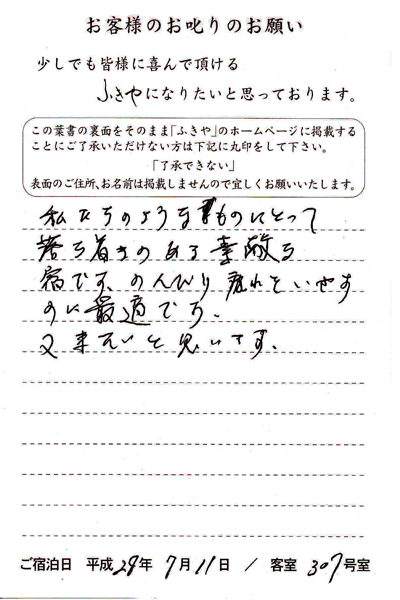 お客様のお叱りのお願い
少しでも皆様に喜んで頂ける
ふきやになりたいと思っております。
この葉書の裏面をそのまま「ふきや」のホームページに掲載する
ことにご了承いただけない方は下記に丸印をして下さい。
「了承できない」
表面のご住所、お名前は掲載しませんので宜しくお願いいたします。
私たちのようなものにとって
落ち着きのある素敵な
宿です、のんびり疲れをいやす
のに最適です。
又来たいと思います。
ご宿泊日 平成29年 7月11日 / 客室 307号室